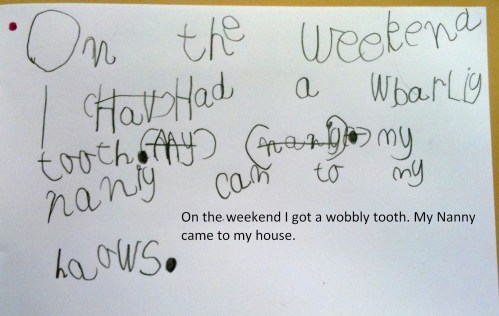 On the weekend
I (Hav) Had a wbarlig
tooth. (My) (nanig.) my
nanig cam to my
haows.
On the weekend I got a wobbly tooth. My Nanny
came to my house.